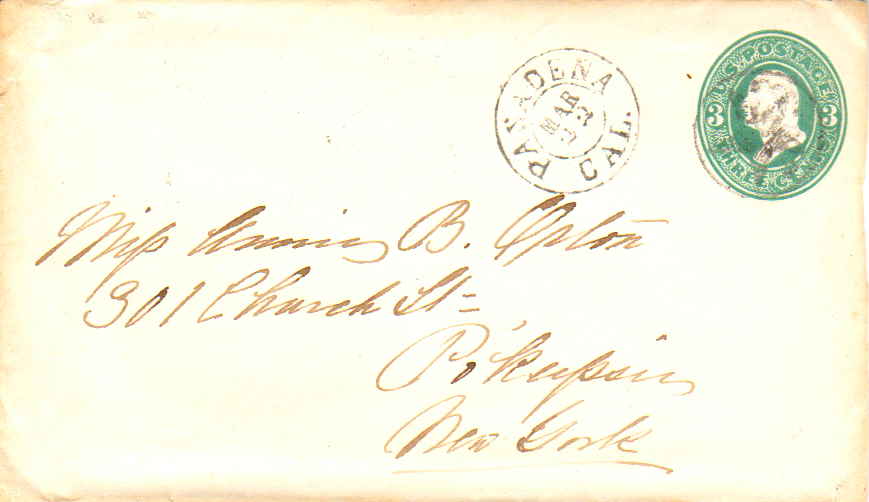 PASADENA
CAL.
MAR
23
U.S. POSTAGE
3 3
THREE CENTS
Miss Annie B. Upton
301 Church St=
Po'keepsie
New York